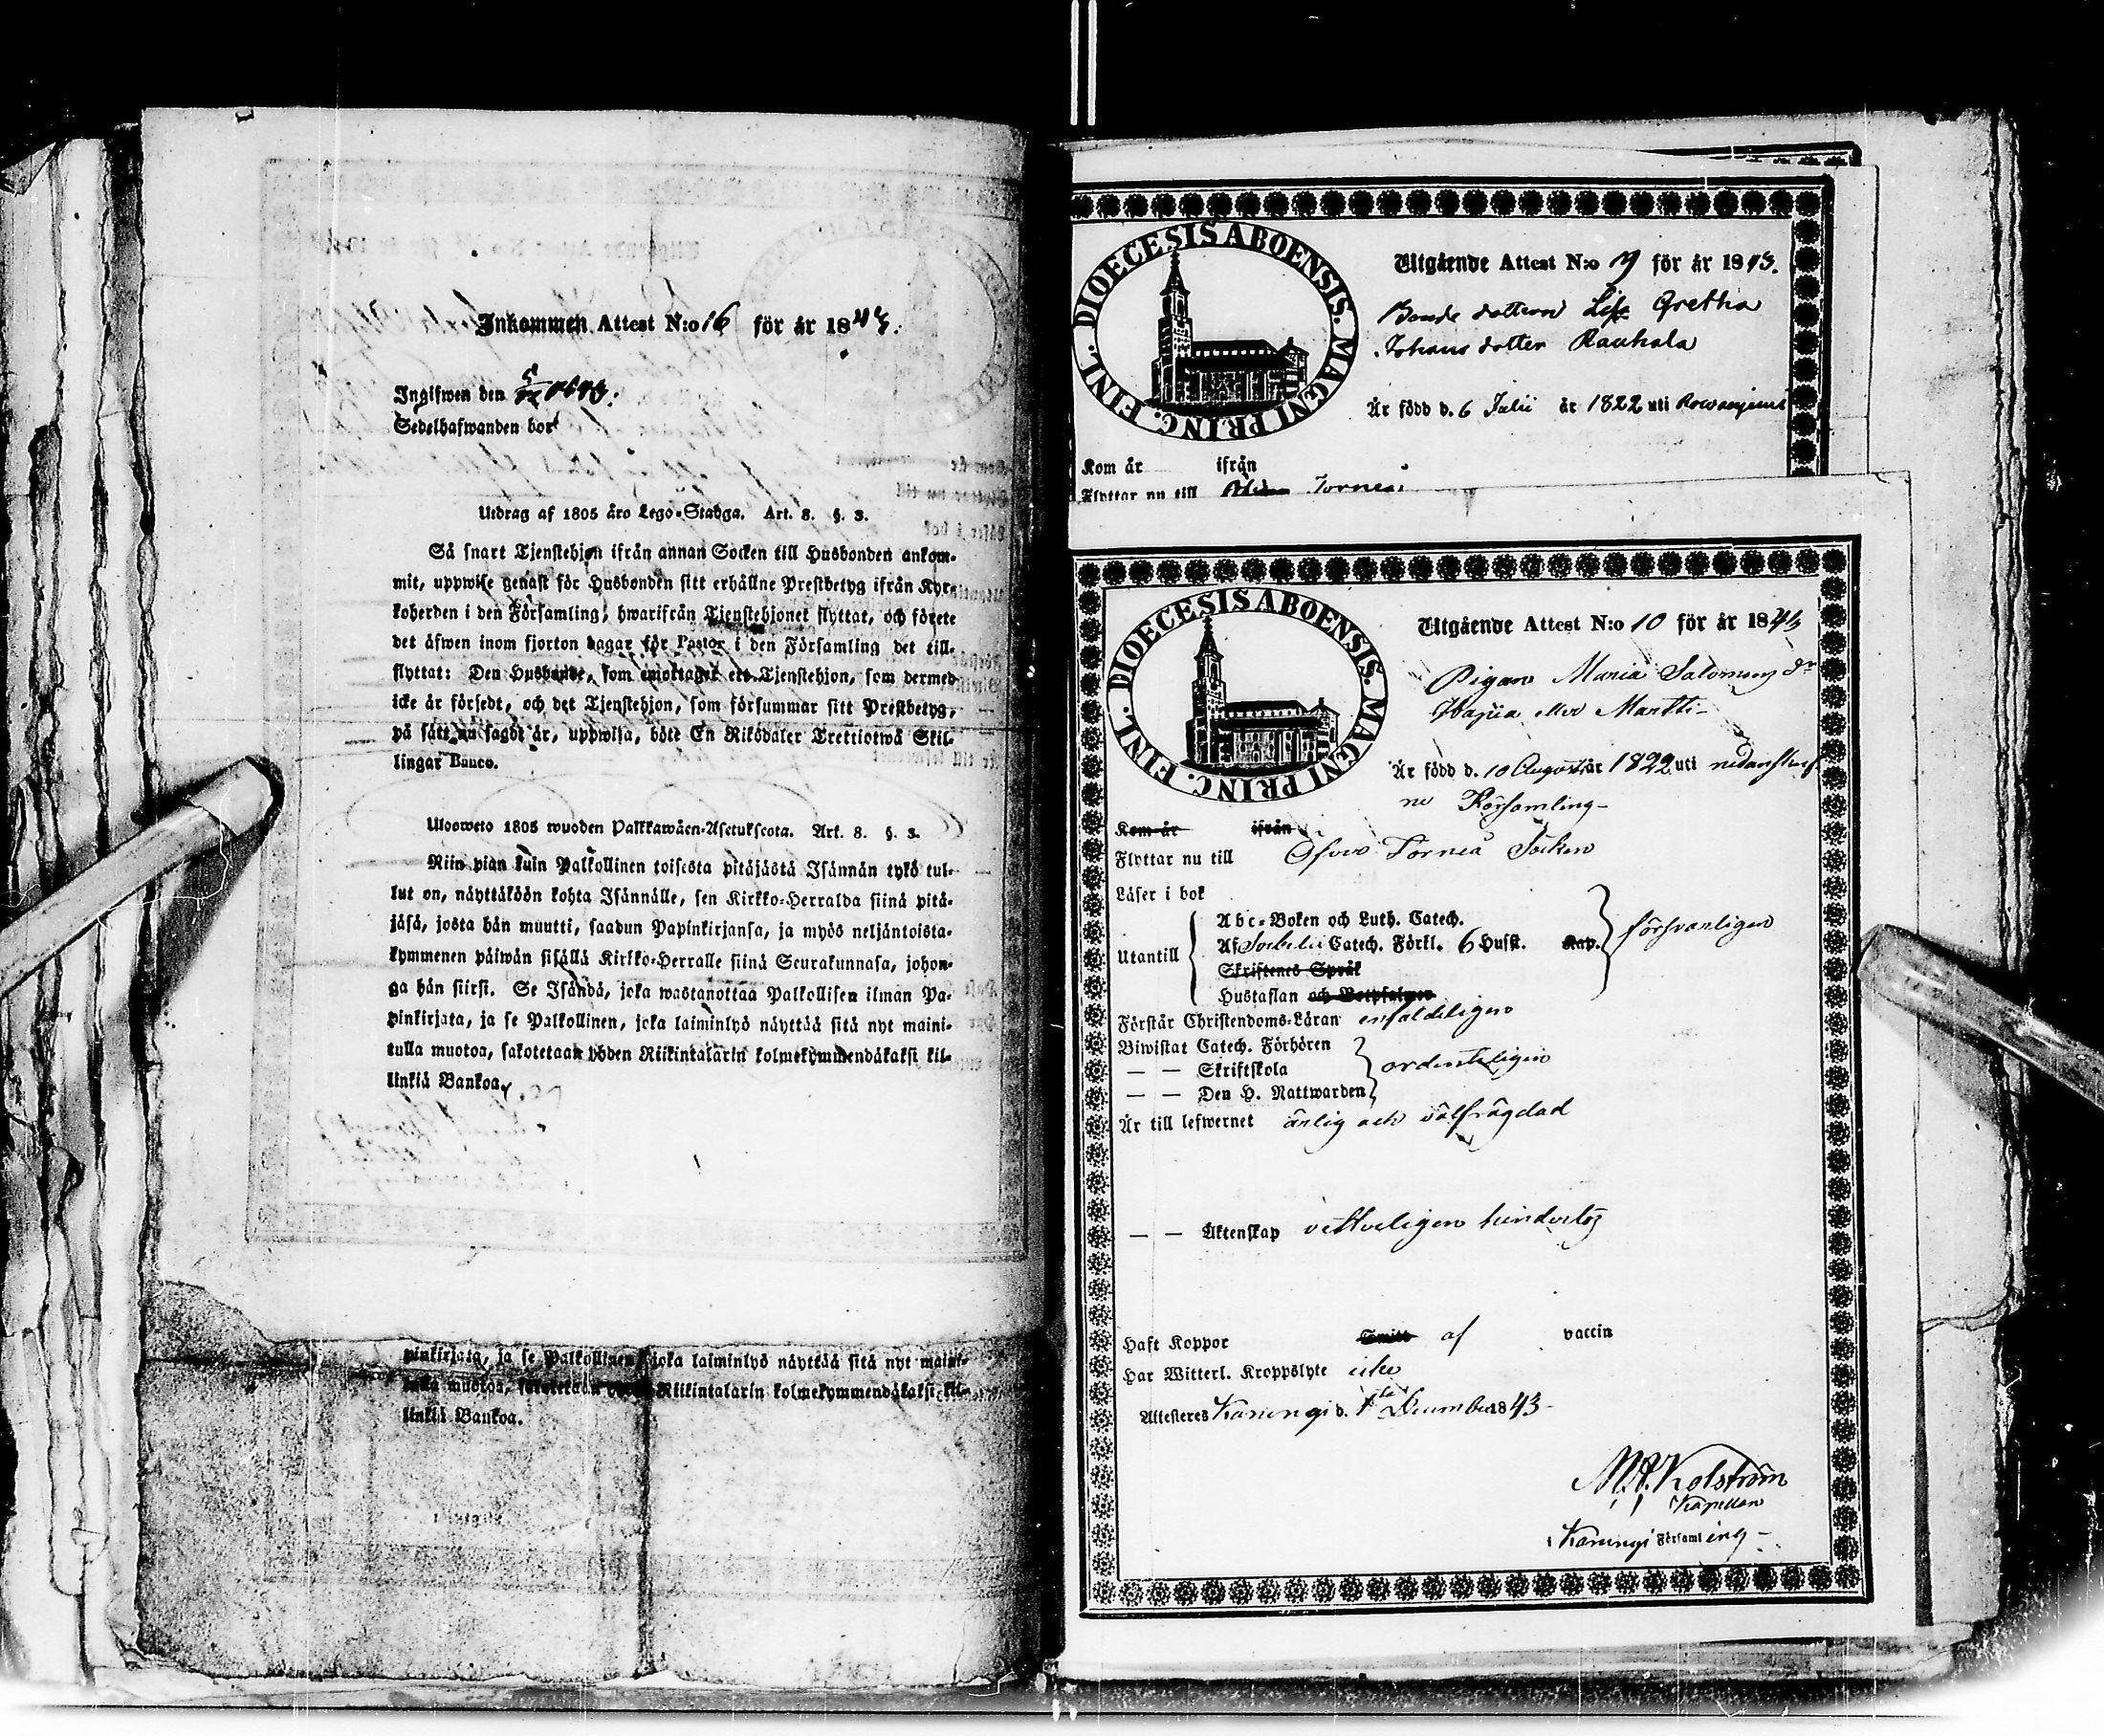 Inkommen Attest N:o 16 för år 1843.
Ingifwen den 1843.
Sedelhafwanden bor
Utdrag af 1805 års Lego-Stadga. Art. 8. §. 3.
Så snart Tjenstehjon ifrån annan Socken till Husbonden ankom-
mit, uppwise genast för Husbonden sitt erhållne Prestbetyg ifrån Kyr-
koherden i den Församling, hwarifrån Tjenstehjonet flyttat, och förete
det äfwen inom fjorton dagar för Pastor i den Församling det till-
flyttat: Den Husbonde, som emottager ett Tjenstehjon, som dermed
icke är försedt, och det Tjenstehjon, som försummar sitt Prestbetyg,
på sätt nu sagdt är, uppwisa, böte En Riksdaler Trettiotwå Skil-
lingar Banco.
Ulosweto 1805 wuoden Palkkawäen-Asetuksesta. Art. 8. §. 3.
Niin pian kuin Palkollinen toisesta pitäjästä Isännän tykö tul-
lut on, näyttäköön kohta Isännälle, sen Kirkko-Herralda siinä pitä-
jäsä, josta hän muutti, saadun Papinkirjansa, ja myös neljäntoista-
kymmenen päiwän sisällä Kirkko-Herralle siinä Seurakunnasa, johon-
ga hän siirsi. Se Isändä, joka wastanottaa Palkollisen ilman Pa-
pinkirjata, ja se Palkollinen, joka laiminlyö näyttää sitä nyt maini-
tulla muotoa, sakotetaan yhden Riikintalarin kolmekymmendäkaksi kil-
linkiä Bankoa.
pinkirjata, ja se Palkollinen, joka laiminlyö näyttää sitä nyt maini-
tulla muotoa, sakotetaan Riikintalarin kolmekymmendäkaksi kil-
linkiä Bankoa.
DIOECESIS ABOENSIS. MAGNI PRINC. FINL.
Utgående Attest N:o för år 1843.
Bonde dottren Lisa Gretha
Johans dotter Rauhala
Är född d. 6 Julii år 1822 uti Rowaniemi
Kom år ifrån
Flyttar nu till Torneå
DIOECESIS ABOENSIS. MAGNI PRINC. FINL.
Utgående Attest N:o 10 för år 1843
Pigan Maria Salomons dr
eller Martti
Är född d. 10 Augusti år 1822 uti nedanskrif
ne Församling
Kom år ifrån
Flyttar nu till Öfver Torneå Socken
Läser i bok
Utantill
Abc-Boken och Luth. Catech.
Af Svebelii Catech. Förkl. 6 Husst. Kap. försvarligen
Skriftenes Språk
Hustaflan och Botpsalmer
Förstår Christendoms-Läran enfaldeligen
Biwistat Catech. Förhören
— — Skriftskola ordenteligen
— — Den H. Nattwarden
Är till lefwernet ärlig och välfrägdad
— — Äktenskap vetterligen hinderlös
Haft Koppor Smitt af vaccin
Har Witterl. Kroppslyte icke
Attesteras Karungi d. 1sta December 1843
Kolström
Kapellan
Karungi Församling